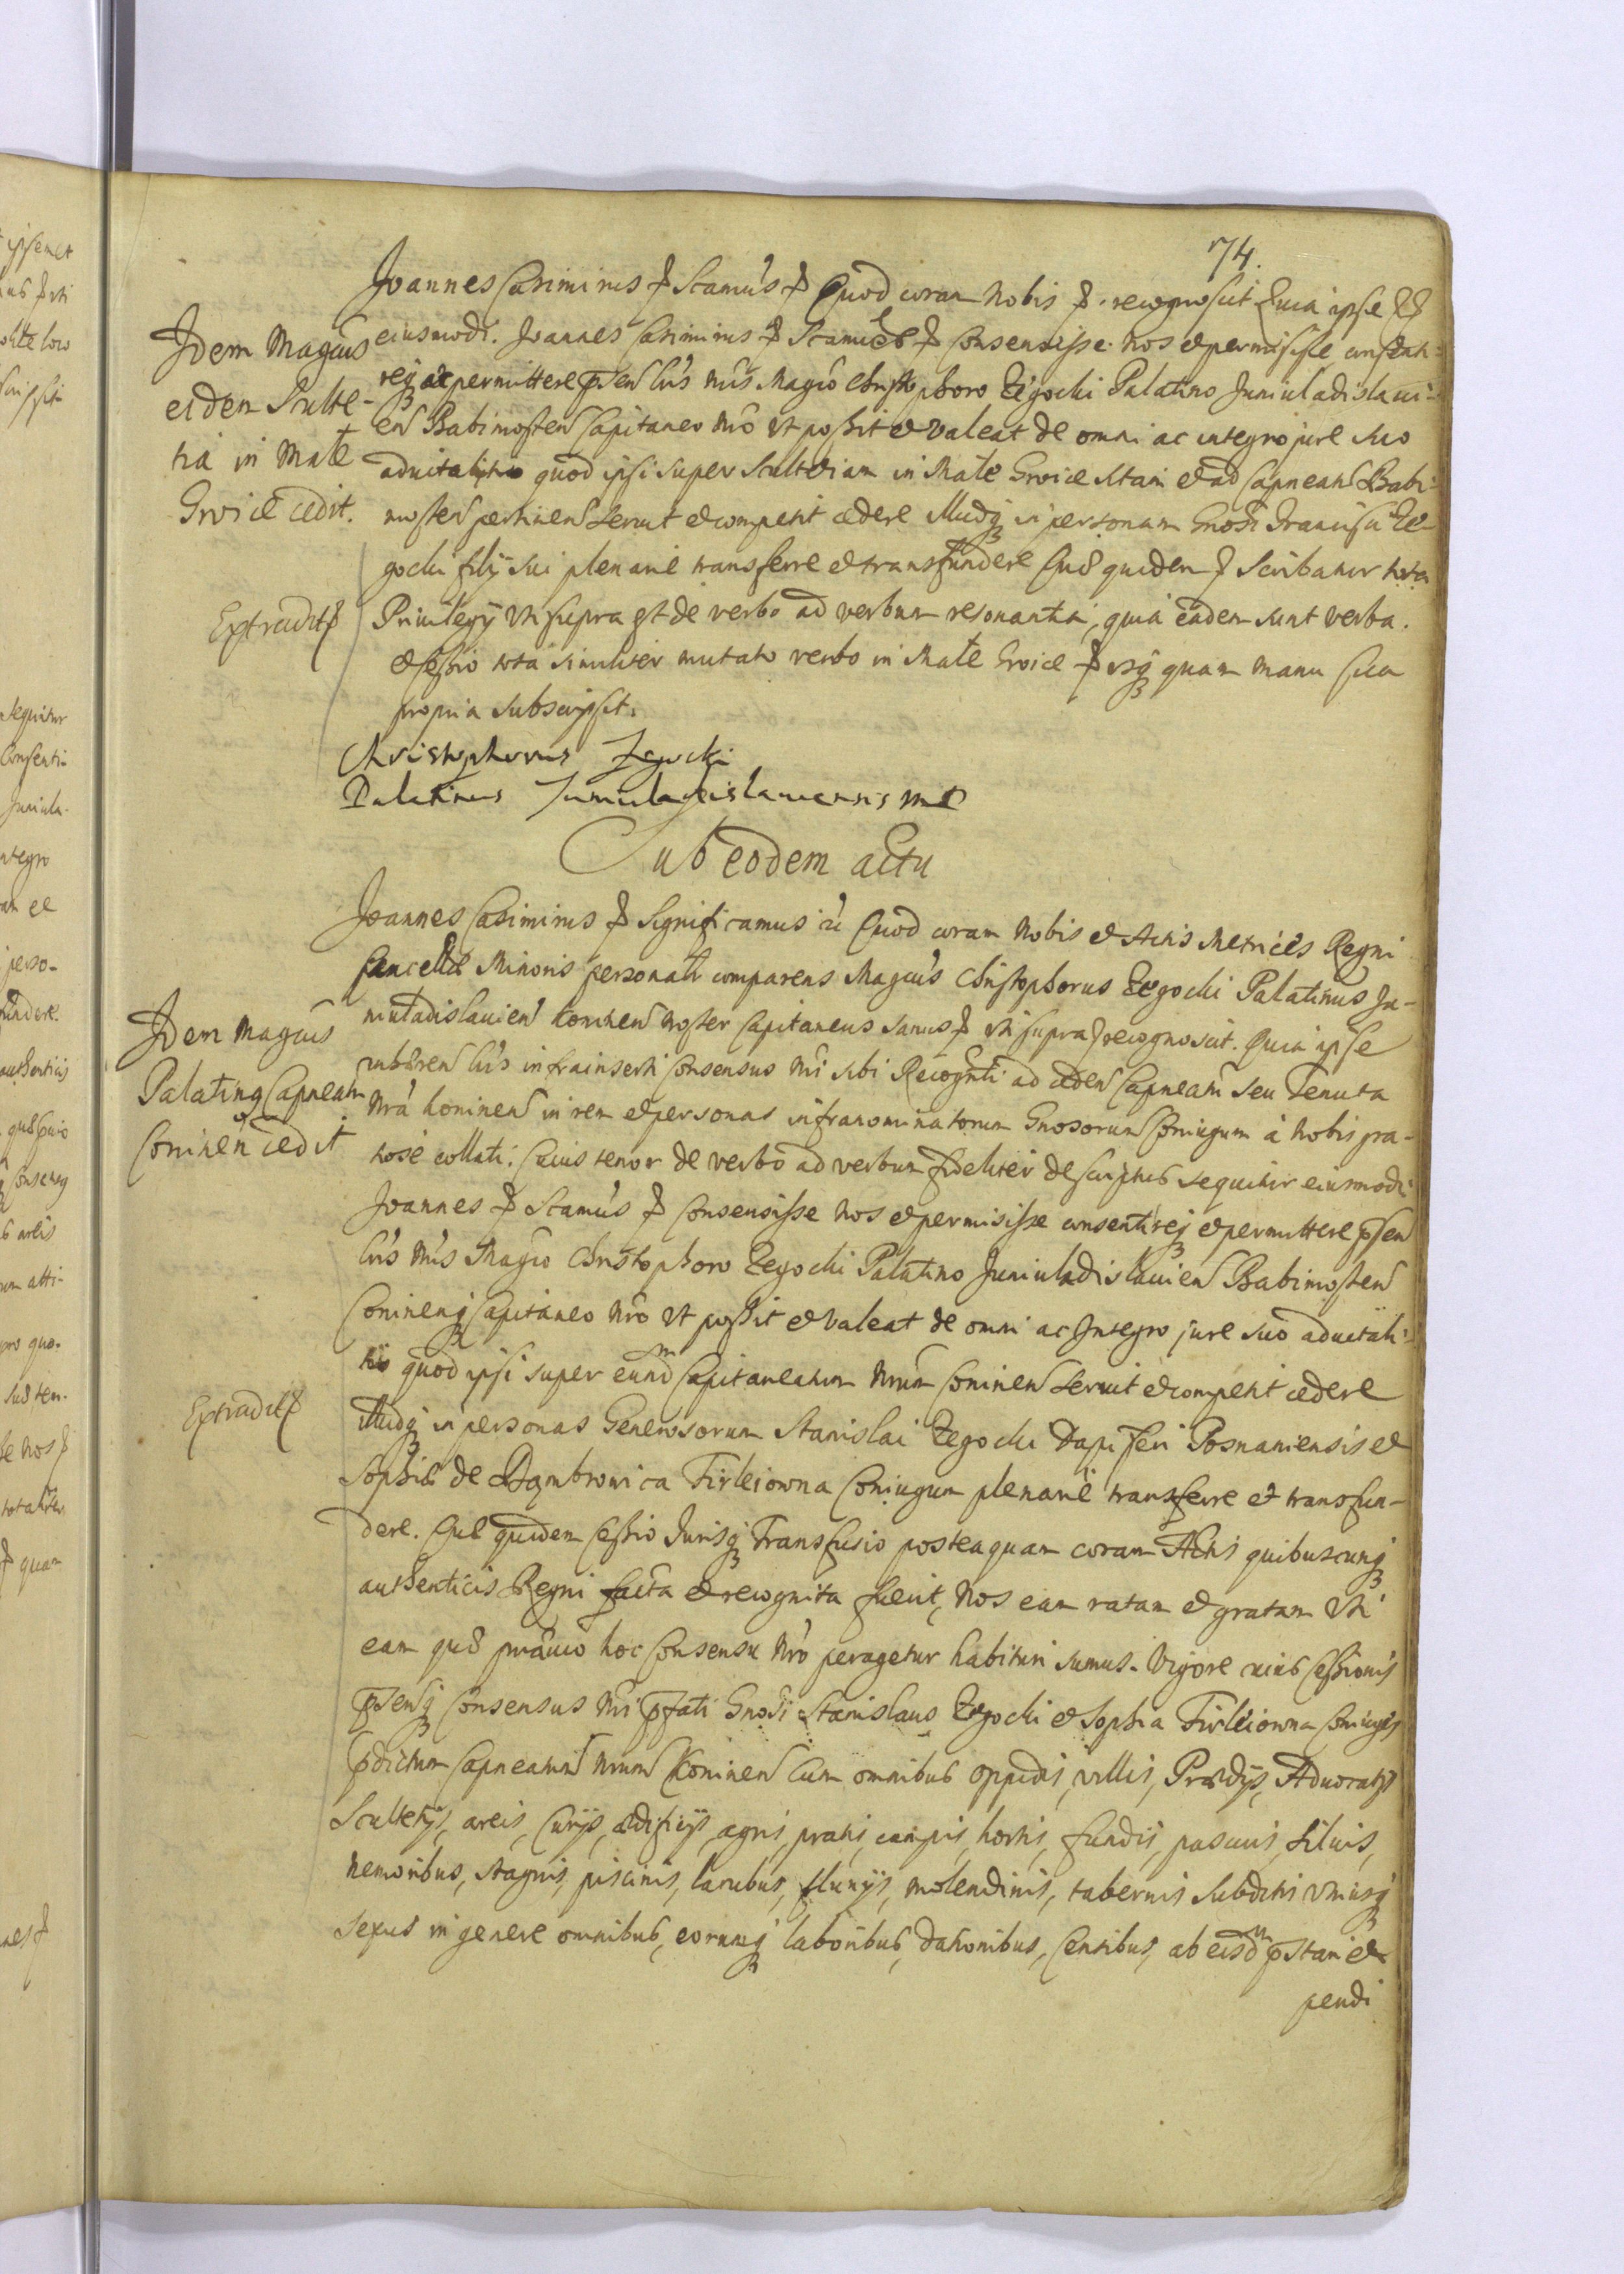 74.
Joannes Casimirus & Scamus & Quod coram Nobis & recognoscit Quia ipse &&
eiusmodi. Joannes Casimirus & Scamus & Consensisse Nos et permisisse consenti-
req; ac permittere pñen lris nris Magco Christophoro Zegocki Palatino Juniuladislaui-
en Babimosten Capitaneo Nro vt possit et valeat de omni ac integro jure suo
aduitalitio quod ipsi super Scultetiam in Male Groice sitam et ad Capneatũ Babi-
mosten pertinen seruit et competit cedere illudq; in personam Gnosi Francisci Ze-
gocki filij sui plenarie transferre et transfundere Quæ quidem & Scribatur tota
Priuilegij vti supra est de verbo ad verbum resonantia, quia eadem sunt verba.
et Cessio tota similiter mutato verbo in Male Groice & usq; quam manu sua
propria subscripsit.
Christophorus Zegocki
Palatinus Juniuladislauiensis mp
Idem Magcus
eidem Sculte-
tia in Male
Groice cedit.
Extradit&
Sub eodem actu
Joannes Casimirus & Significamus & Quod coram Nobis et Actis Metrices Regni
Cancellæ Minoris personalr comparens Magcus Christophorus Zegocki Palatinus Ju-
niuladislauien Koninen Noster Capitaneus sanus & vti supra & recognoscit. Quia ipse
inhæren lris infrainserti Consensus Nri sibi Recognti ad ceden Capneatũ seu Tenuta
Nra koninen in rem et personas infranominatorum Gnosorum Coniugum à Nobis gra-
tiose collati. Cuius tenor de verbo ad verbum fideliter descriptus sequitur eiusmodi
Joannes & Scamus & Consensisse Nos et permisisse consentireq; et permittere pñen
lris Nris Magco Christophoro Zegocki Palatino Juniuladislauien Babimosten
Coninenq; Capitaneo Nro vt possit et valeat de omni ac Integro jure suo aduitali-
tio quod ipsi super eundm Capitaneatum Nrum Coninen seruit et competit cedere
illudq; in personas Generosorum Stanislai Zegocki Dapiferi Posnaniensis et
Sophiæ de Dąmbrowica Firleiowna Coniugum plenarie transferre et transfun-
dere. Quæ quidem Cessio Jurisq; Transfusio posteaquam coram Actis quibuscunq;
authenticis Regni facta et recognita fuerit, Nos eam ratam et gratam vti
eam quæ præuio hoc Consensu Nro peragetur habituri sumus. Vigore cuius Cessionis
pñensq; Consensus Nri pfati Gnosi Stanislaus Zegocki et Sophia Firleiowna Coniuges
pdictum Capneatum Nrum Koninen Cum omnibus oppidis, villis, Prædijs, Aduocatijs
Scultetijs, areis, Curijs, ædificijs, agris, pratis, campis, hortis, fundis, pascuis, siluis,
nemoribus, stagnis, piscinis, lacubus, fluuijs, molendinis, tabernis subditis vtriusq;
sexus in genere omnibus, eorumq; laboribus, dationibus, Censibus, ab eisdm pstari et
pendi
Idem Magcus
Palatinus Capneatum
Coninen cedit
Extradit&